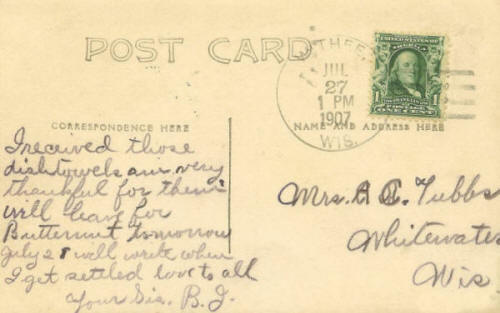 POST CARD
JUL
27
1 PM
1907
WIS.
UNITED STATES OF AMERICA
1
POSTAGE
ONE CENT
CORRESPONDENCE HERE
NAME AND ADDRESS HERE
I received those
dishtowels am very
thankful for them
will leave for
Butternut tomorrow
July 28 will write when
I get settled love to all
Your Sis. B. J.
Mrs. A Tubbs
Whitewater
Wis